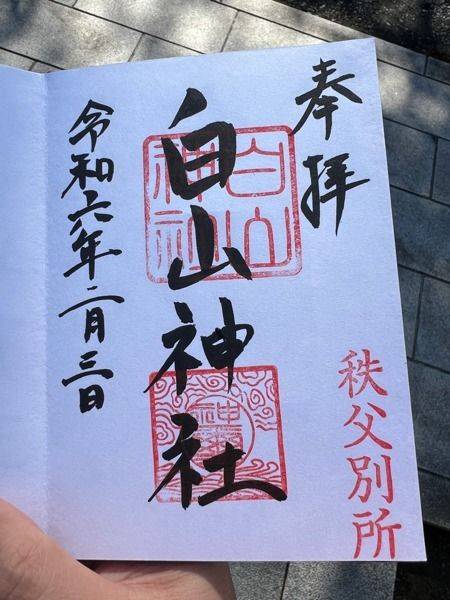 奉拝
白山神社
白山神社
秩父別所
令和六年二月三日